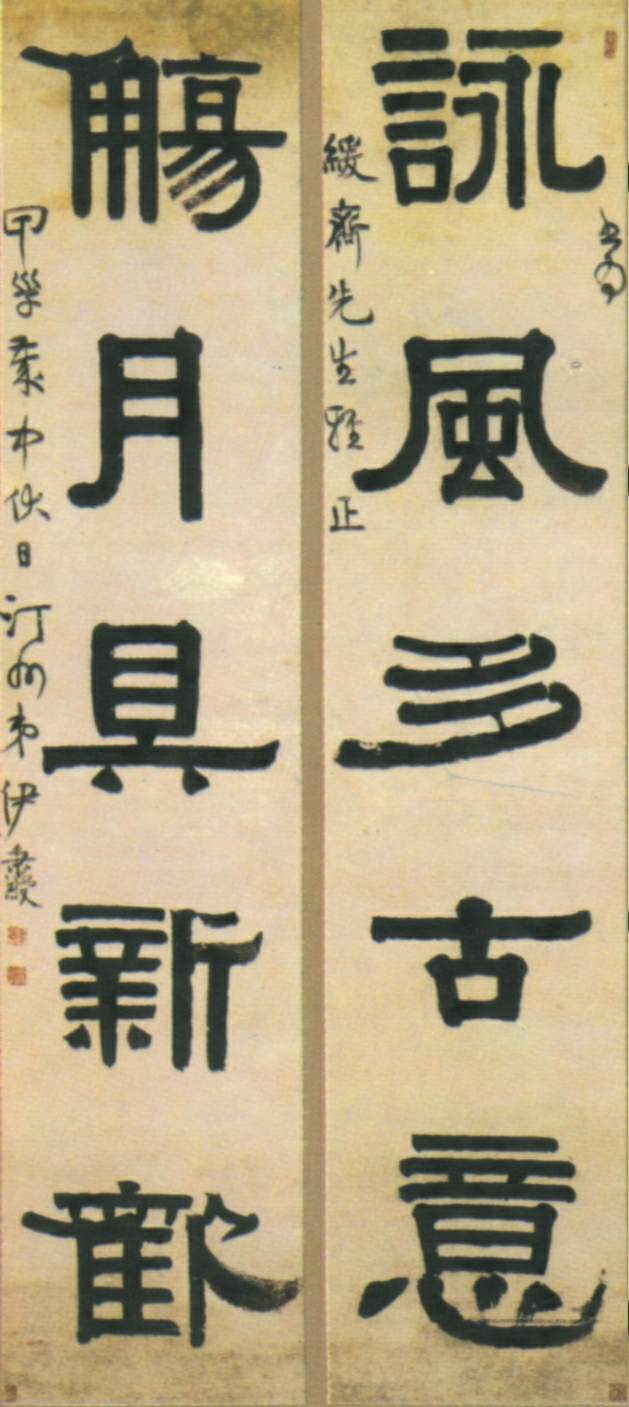 詠風多古意
書為
緩齋先生雅正
觴月具新歡
甲子歲中伏日汀州弟伊秉綬